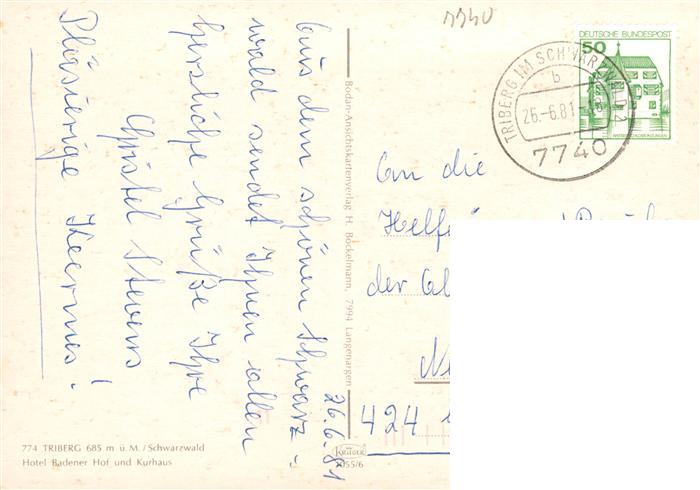 7740
DEUTSCHE BUNDESPOST
50
TRIBERG IM SCHWARZWALD 2
b
26.-6.81-18
7740
26.6.81
Aus dem schönen Schwarz-
wald sendet Ihnen allen
herzliche Grüße Ihre
Christel Stevens
Pläsierige Keermes!
Bodan-Ansichtskartenverlag H. Bockelmann, 7994 Langenargen
An die
der
424
774 TRIBERG 685 m ü. M./Schwarzwald
Hotel Badener Hof und Kurhaus
KRÜGER
1055/6